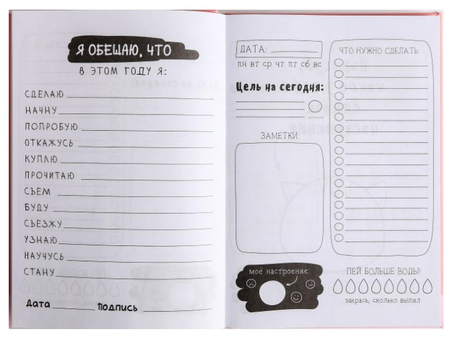 Я ОБЕЩАЮ, ЧТО
В ЭТОМ ГОДУ Я:
СДЕЛАЮ
НАЧНУ
ПОПРОБУЮ
ОТКАЖУСЬ
КУПЛЮ
ПРОЧИТАЮ
СЪЕМ
БУДУ
СЪЕЗЖУ
УЗНАЮ
НАУЧУСЬ
СТАНУ
Дата Подпись
ДАТА:
ПН ВТ СР ЧТ ПТ СБ ВС
Цель на сегодня:
ЗАМЕТКИ:
моё настроение:
ЧТО НУЖНО СДЕЛАТЬ:
ПЕЙ БОЛЬШЕ ВОДЫ!
закрась, сколько выпил